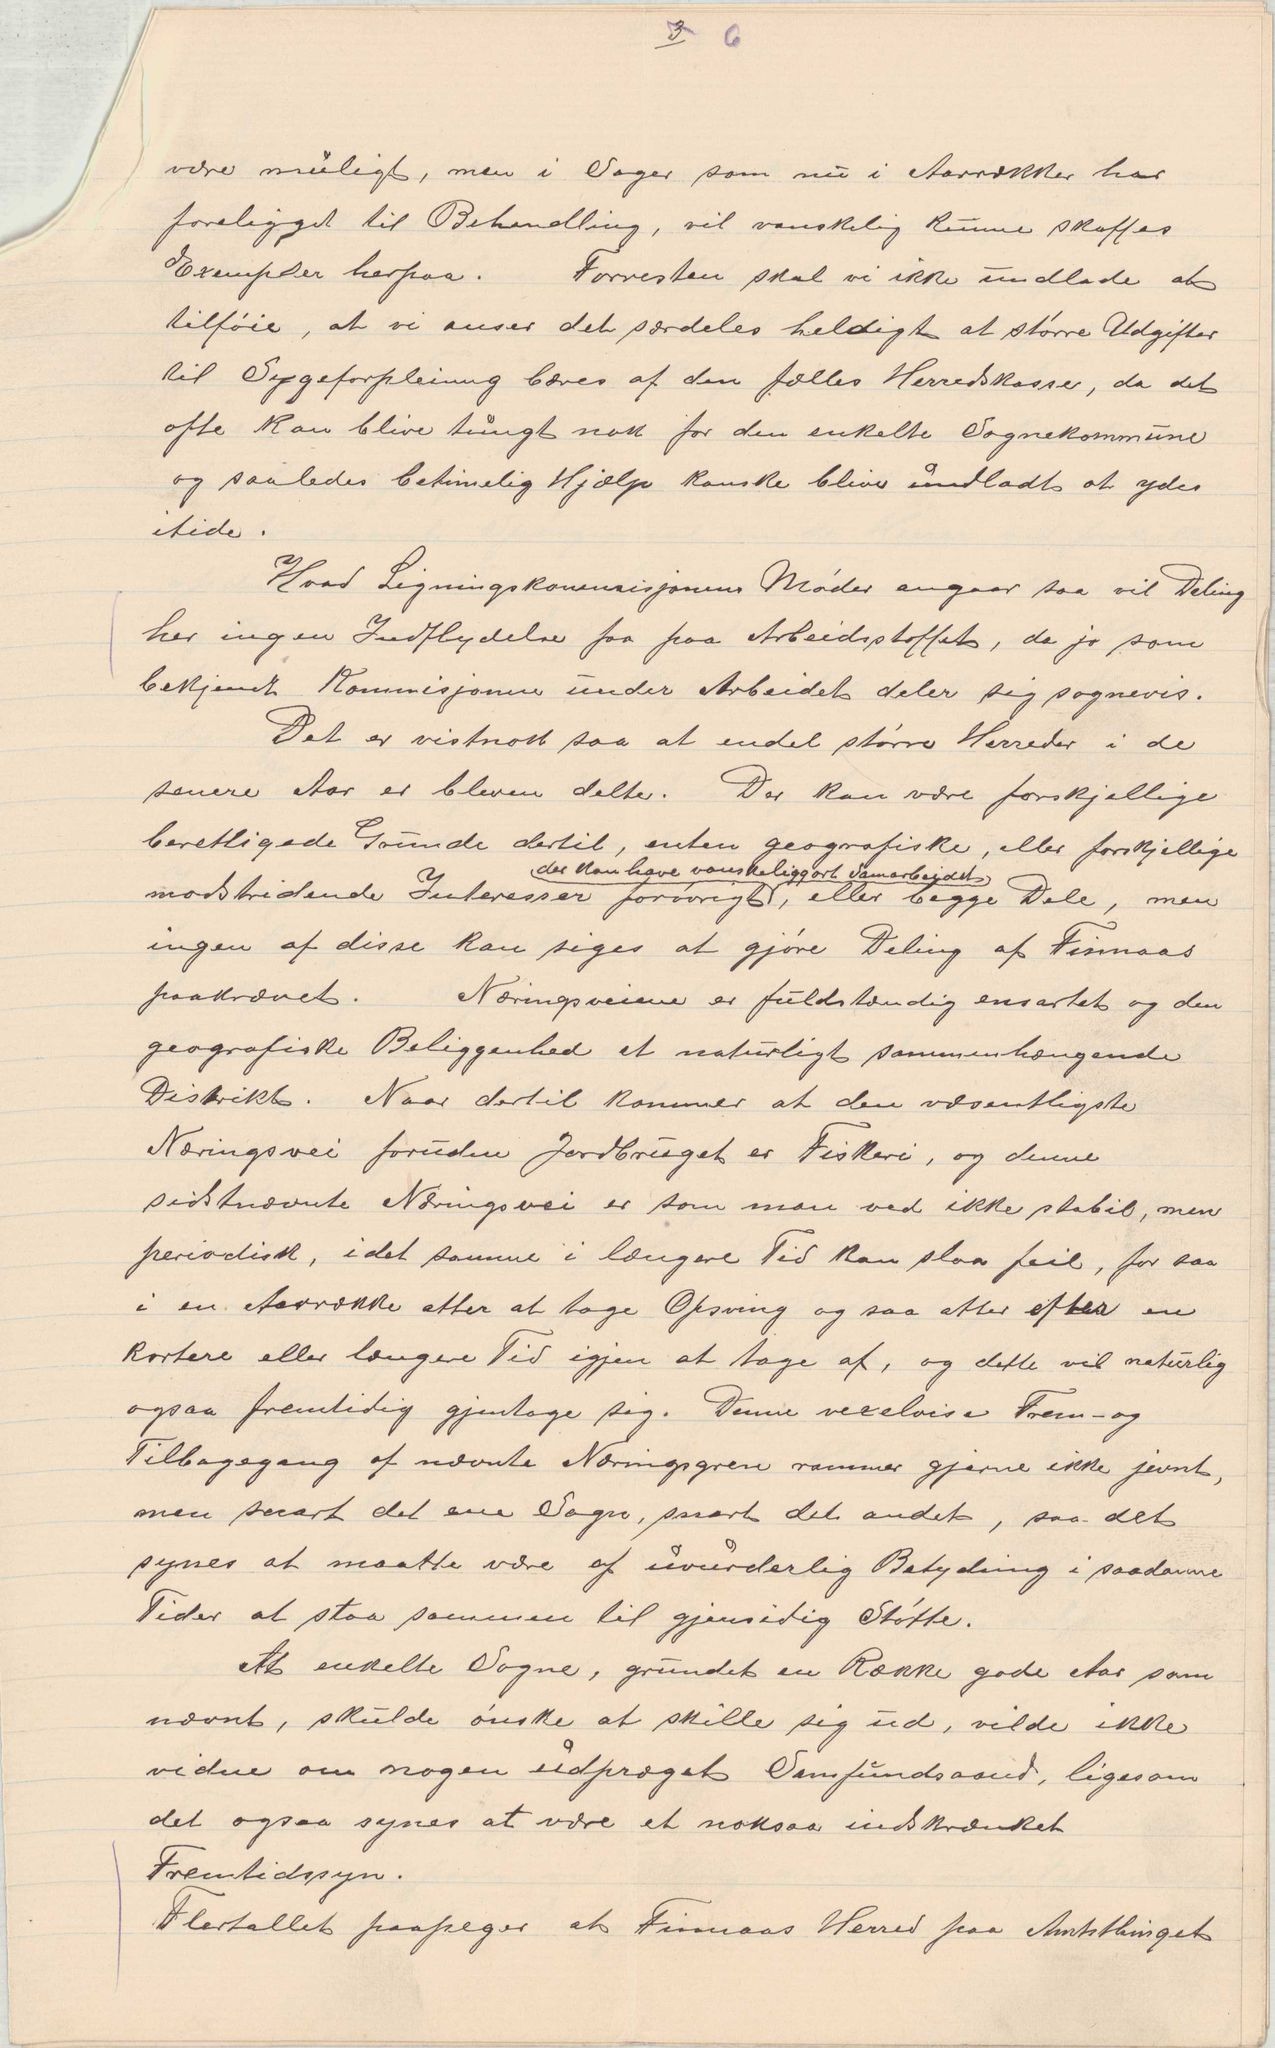 3 6
være muligt, men i Sager som nu i Aarrækker har
foreligget til Behandling, vil vanskelig kunne skaffes
Exempler herpaa. Forresten skal vi ikke undlade at
tilføie, at vi anser det særdeles heldigt at större Udgifter
til Sygeforpleining bæres af den fælles Herredskasse, da det
ofte kan blive tungt nok for den enkelte Sognekommune
og saaledes betimelig Hjælp kanske bliver undladt at ydes
itide.
Hvad Ligningskommisjonens Møder angaar saa vil Deling
her ingen Indflydelse faa paa Arbeidsstoffet, da jo som
bekjendt Kommisjonen under Arbeidet deler sig sognevis.
Det er vistnok saa at endel större Herreder i de
senere Aar er bleven delte. Der kan være forskjellige
berettigede Grunde dertil, enten geografiske, eller forskjellige
der kan have vanskeliggjort Samarbeidet
modstridende Interesser forøvrigt, eller begge Dele, men
ingen af disse kan siges at gjøre Deling af Finnaas
paakrævet. Næringsveiene er fuldstændig ensartet og den
geografiske Beliggenhed et naturligt sammenhængende
Distrikt. Naar dertil kommer at den væsentligste
Næringsvei foruden Jordbruget er Fiskeri, og denne
sidstnævnte Næringsvei er som man ved ikke stabil, men
periodisk, idet samme i længere Tid kan slaa feil, for saa
i en Aarrække atter at tage Opsving og saa atter efter en
kortere eller længere Tid igjen at tage af, og dette vil naturlig
ogsaa fremtidig gjentage sig. Denne vexelvise Frem- og
Tilbagegang af nævnte Næringsgren rammer gjerne ikke jevnt,
men snart det ene Sogn, snart det andet, saa det
synes at maatte være af uvurderlig Betydning i saadanne
Tider at staa sammen til gjensidig Støtte.
At enkelte Sogne, grundet en Række gode Aar som
nævnt, skulde ønske at skille sig ud, vilde ikke
vidne om nogen udpræget Samfundsaand, ligesom
det ogsaa synes at være et noksaa indskrænket
Fremtidssyn.
Flertallet paapeger at Finnaas Herred paa Amtsthinget